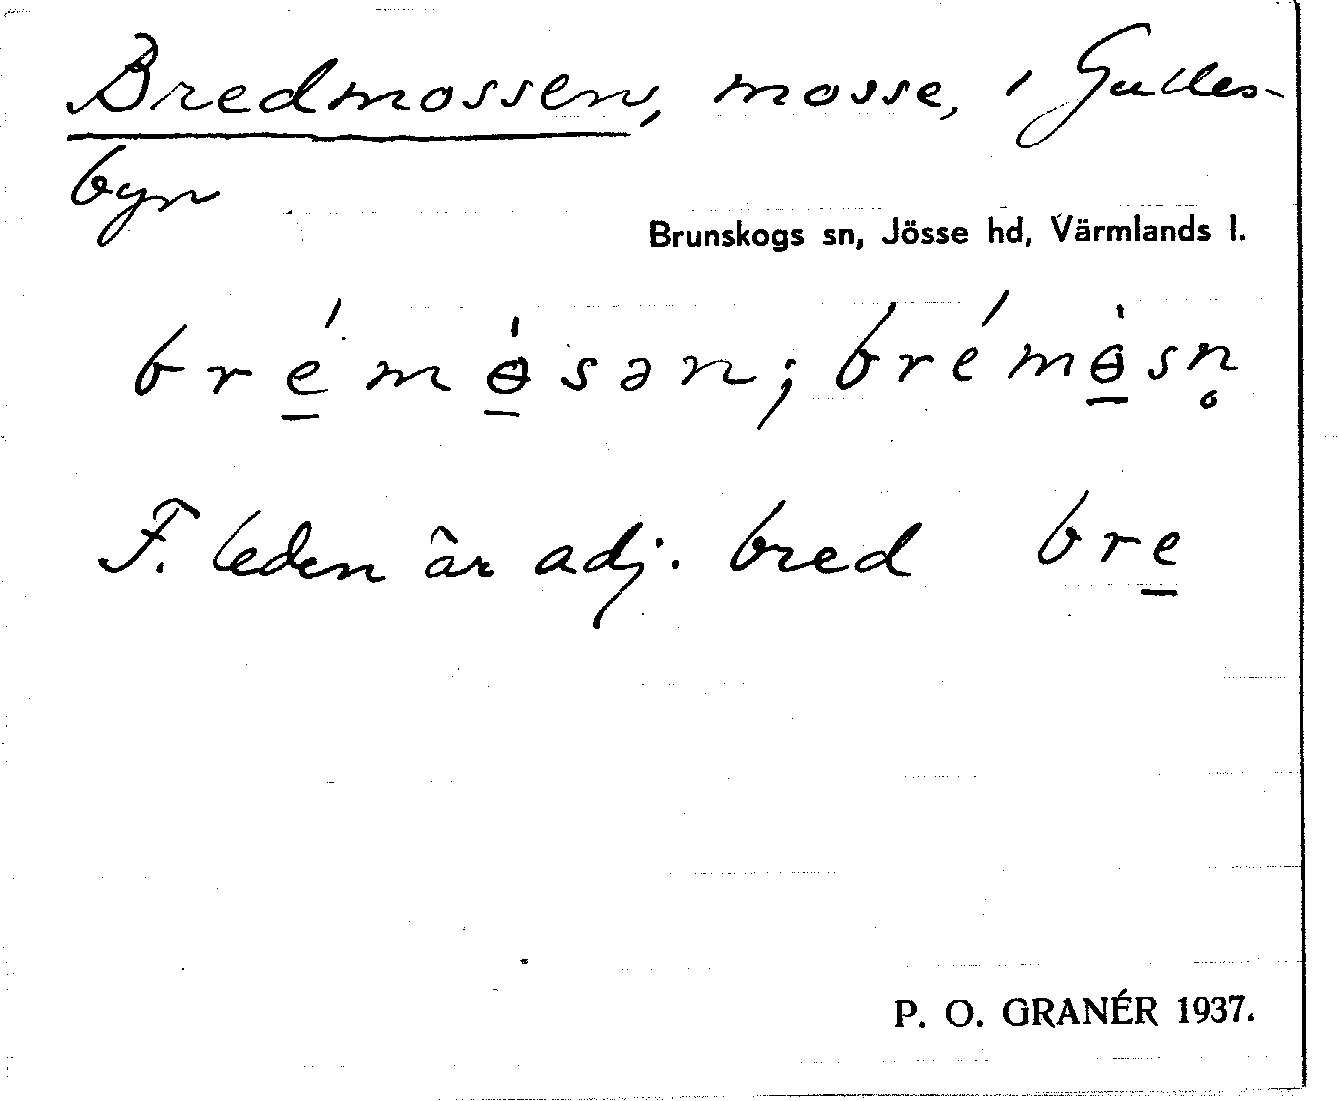 Bredmossen, mosse, i Gulles-
byn
Brunskogs sn, Jösse hd, Värmlands l.
bré̲mɵ̲̀sən; brémɵ̲̀sn̥
F. leden är adj. bred bre̲
P. O. GRANÉR 1937.